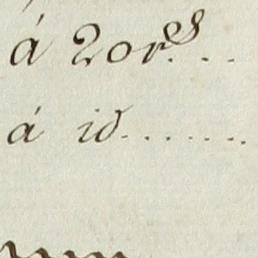 á 20 r.s ...
á id........